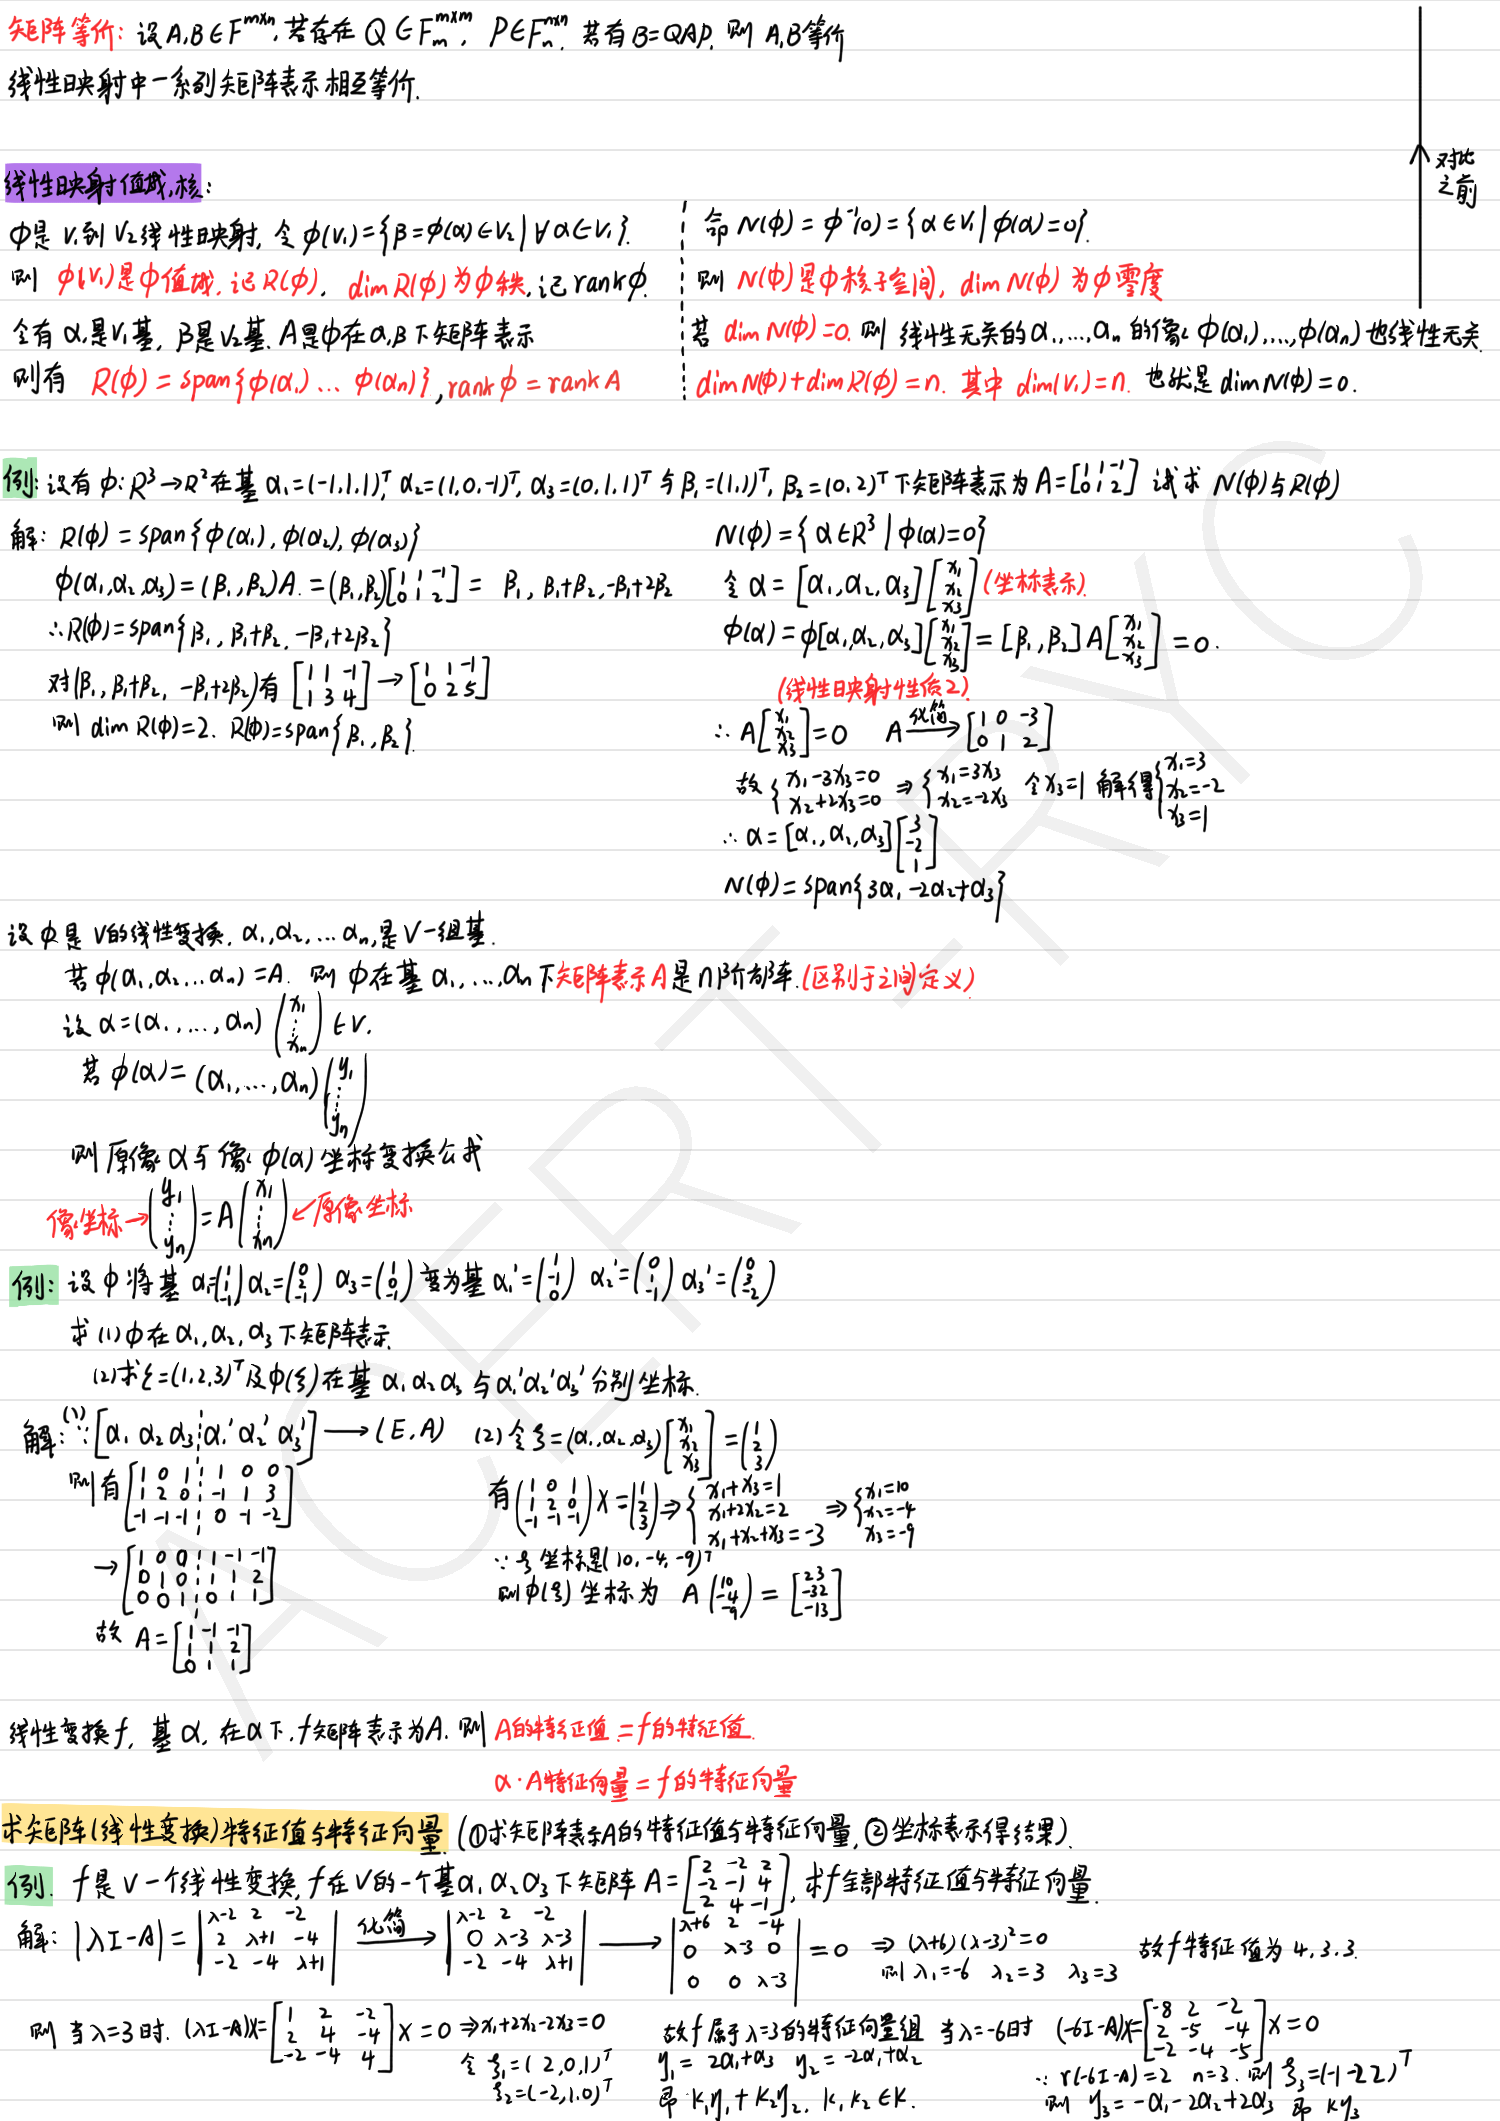 矩阵等价: 设A,B∈F^{m×n}, 若存在 Q∈F_m^{m×m}, P∈F_n^{n×n}, 若有B=QAP, 则 A,B等价
线性映射中一系列矩阵表示相互等价.
对比之前
线性映射值域,核:
φ是 V₁到 V₂线性映射, 令 φ(V₁)={β=φ(α)∈V₂|∀α∈V₁}.
则 φ(V₁)是φ值域,记R(φ), dimR(φ)为φ秩,记rankφ.
令有 α₁是V₁基, β是V₂基. A是φ在α,β下矩阵表示
则有 R(φ)=span{φ(α₁)...φ(αn)}, rankφ=rankA
命 N(φ)=φ⁻¹(0)={α∈V₁|φ(α)=0}.
则 N(φ)是φ核子空间, dimN(φ)为φ零度
若 dimN(φ)=0. 则 线性无关的α₁,...,αn的像 φ(α₁),...,φ(αn)也线性无关.
dimN(φ)+dimR(φ)=n. 其中 dim(V₁)=n. 也就是dimN(φ)=0.
例: 设有 φ: R³→R²在基 α₁=(-1,1,1)ᵀ, α₂=(1,0,-1)ᵀ, α₃=(0,1,1)ᵀ 与 β₁=(1,1)ᵀ, β₂=(0,2)ᵀ下矩阵表示为 A=[1 1 -1; 0 1 2] 试求 N(φ)与R(φ)
解: R(φ)=span{φ(α₁),φ(α₂),φ(α₃)}
φ(α₁,α₂,α₃)=(β₁,β₂)A=(β₁,β₂)[1 1 -1; 0 1 2]= β₁, β₁+β₂,-β₁+2β₂
∴R(φ)=span{β₁, β₁+β₂, -β₁+2β₂}
对(β₁,β₁+β₂, -β₁+2β₂)有 [1 1 -1; 1 3 4]→[1 1 -1; 0 2 5]
则 dimR(φ)=2. R(φ)=span{β₁,β₂}.
N(φ)={α∈R³|φ(α)=0}
令 α=[α₁,α₂,α₃][x₁; x₂; x₃] (坐标表示)
φ(α)=φ[α₁,α₂,α₃][x₁; x₂; x₃]=[β₁,β₂]A[x₁; x₂; x₃]=0.
(线性映射性质2)
∴ A[x₁; x₂; x₃]=0 A 化简→[1 0 -3; 0 1 2]
故{x₁-3x₃=0; x₂+2x₃=0 ⇒{x₁=3x₃; x₂=-2x₃ 令x₃=1 解得{x₁=3; x₂=-2; x₃=1
∴ α=[α₁,α₂,α₃][3; -2; 1]
N(φ)=span{3α₁-2α₂+α₃}
设φ是 V的线性变换. α₁,α₂,...αn,是V一组基.
若φ(α₁,α₂...αn)=A. 则 φ在基 α₁,...,αn下矩阵表示A是n阶方阵.(区别于之间定义)
设 α=(α₁,...,αn)(x₁; ⋮; xn)∈V.
若 φ(α)=(α₁,...,αn)(y₁; ⋮; yn)
则原像α与像φ(α)坐标变换公式
像坐标→(y₁; ⋮; yn)=A(x₁; ⋮; xn)←原像坐标
例: 设φ将基 α₁=(1; 1; -1) α₂=(0; 2; -1) α₃=(1; 0; -1)变为基 α₁'=(1; -1; 0) α₂'=(0; 1; -1) α₃'=(0; 3; -2)
求 (1)φ在α₁,α₂,α₃下矩阵表示.
(2)求ξ=(1,2,3)ᵀ及φ(ξ)在基 α₁α₂α₃与α₁'α₂'α₃'分别坐标.
解: (1) ∵[α₁ α₂ α₃ ⋮ α₁' α₂' α₃']→(E,A)
则有[1 0 1 ⋮ 1 0 0; 1 2 0 ⋮ -1 1 3; -1 -1 -1 ⋮ 0 -1 -2]
→[1 0 0 ⋮ 1 -1 -1; 0 1 0 ⋮ 1 1 2; 0 0 1 ⋮ 0 1 1]
故 A=[1 -1 -1; 1 1 2; 0 1 1]
(2)令ξ=(α₁,α₂,α₃)[x₁; x₂; x₃]=(1; 2; 3)
有(1 0 1; 1 2 0; -1 -1 -1)X=(1; 2; 3)⇒{x₁+x₃=1; x₁+2x₂=2; x₁+x₂+x₃=-3 ⇒{x₁=10; x₂=-4; x₃=-9
∵ξ坐标是(10,-4,-9)ᵀ
则φ(ξ)坐标为 A(10; -4; -9)=[23; -32; -13]
线性变换f, 基α, 在α下.f矩阵表示为A. 则 A的特征值=f的特征值.
α·A特征向量=f的特征向量
求矩阵(线性变换)特征值与特征向量.(①求矩阵表示A的特征值与特征向量,②坐标表示得结果).
例. f是V一个线性变换,f在V的一个基α₁α₂α₃下矩阵 A=[2 -2 2; -2 -1 4; 2 4 -1], 求f全部特征值与特征向量.
解: |λI-A|=|λ-2 2 -2; 2 λ+1 -4; -2 -4 λ+1| 化简→ |λ-2 2 -2; 0 λ-3 λ-3; -2 -4 λ+1|→|λ+6 2 -4; 0 λ-3 0; 0 0 λ-3|=0 ⇒(λ+6)(λ-3)²=0 则λ₁=-6 λ₂=3 λ₃=3 故f特征值为4,3,3.
则当λ=3时. (λI-A)X=[1 2 -2; 2 4 -4; -2 -4 4]X=0⇒x₁+2x₂-2x₃=0
令 ξ₁=(2,0,1)ᵀ
ξ₂=(-2,1,0)ᵀ
故f属于λ=3的特征向量组
y₁=2α₁+α₃ y₂=-2α₁+α₂
即 k₁y₁+k₂y₂, k₁,k₂∈K.
当λ=-6时 (-6I-A)X=[-8 2 -2; 2 -5 -4; -2 -4 -5]X=0
∵r(-6I-A)=2 n=3. 则ξ₃=(-1 -2 2)ᵀ
则 y₃=-α₁-2α₂+2α₃ 即 ky₃
ACERT-RYC